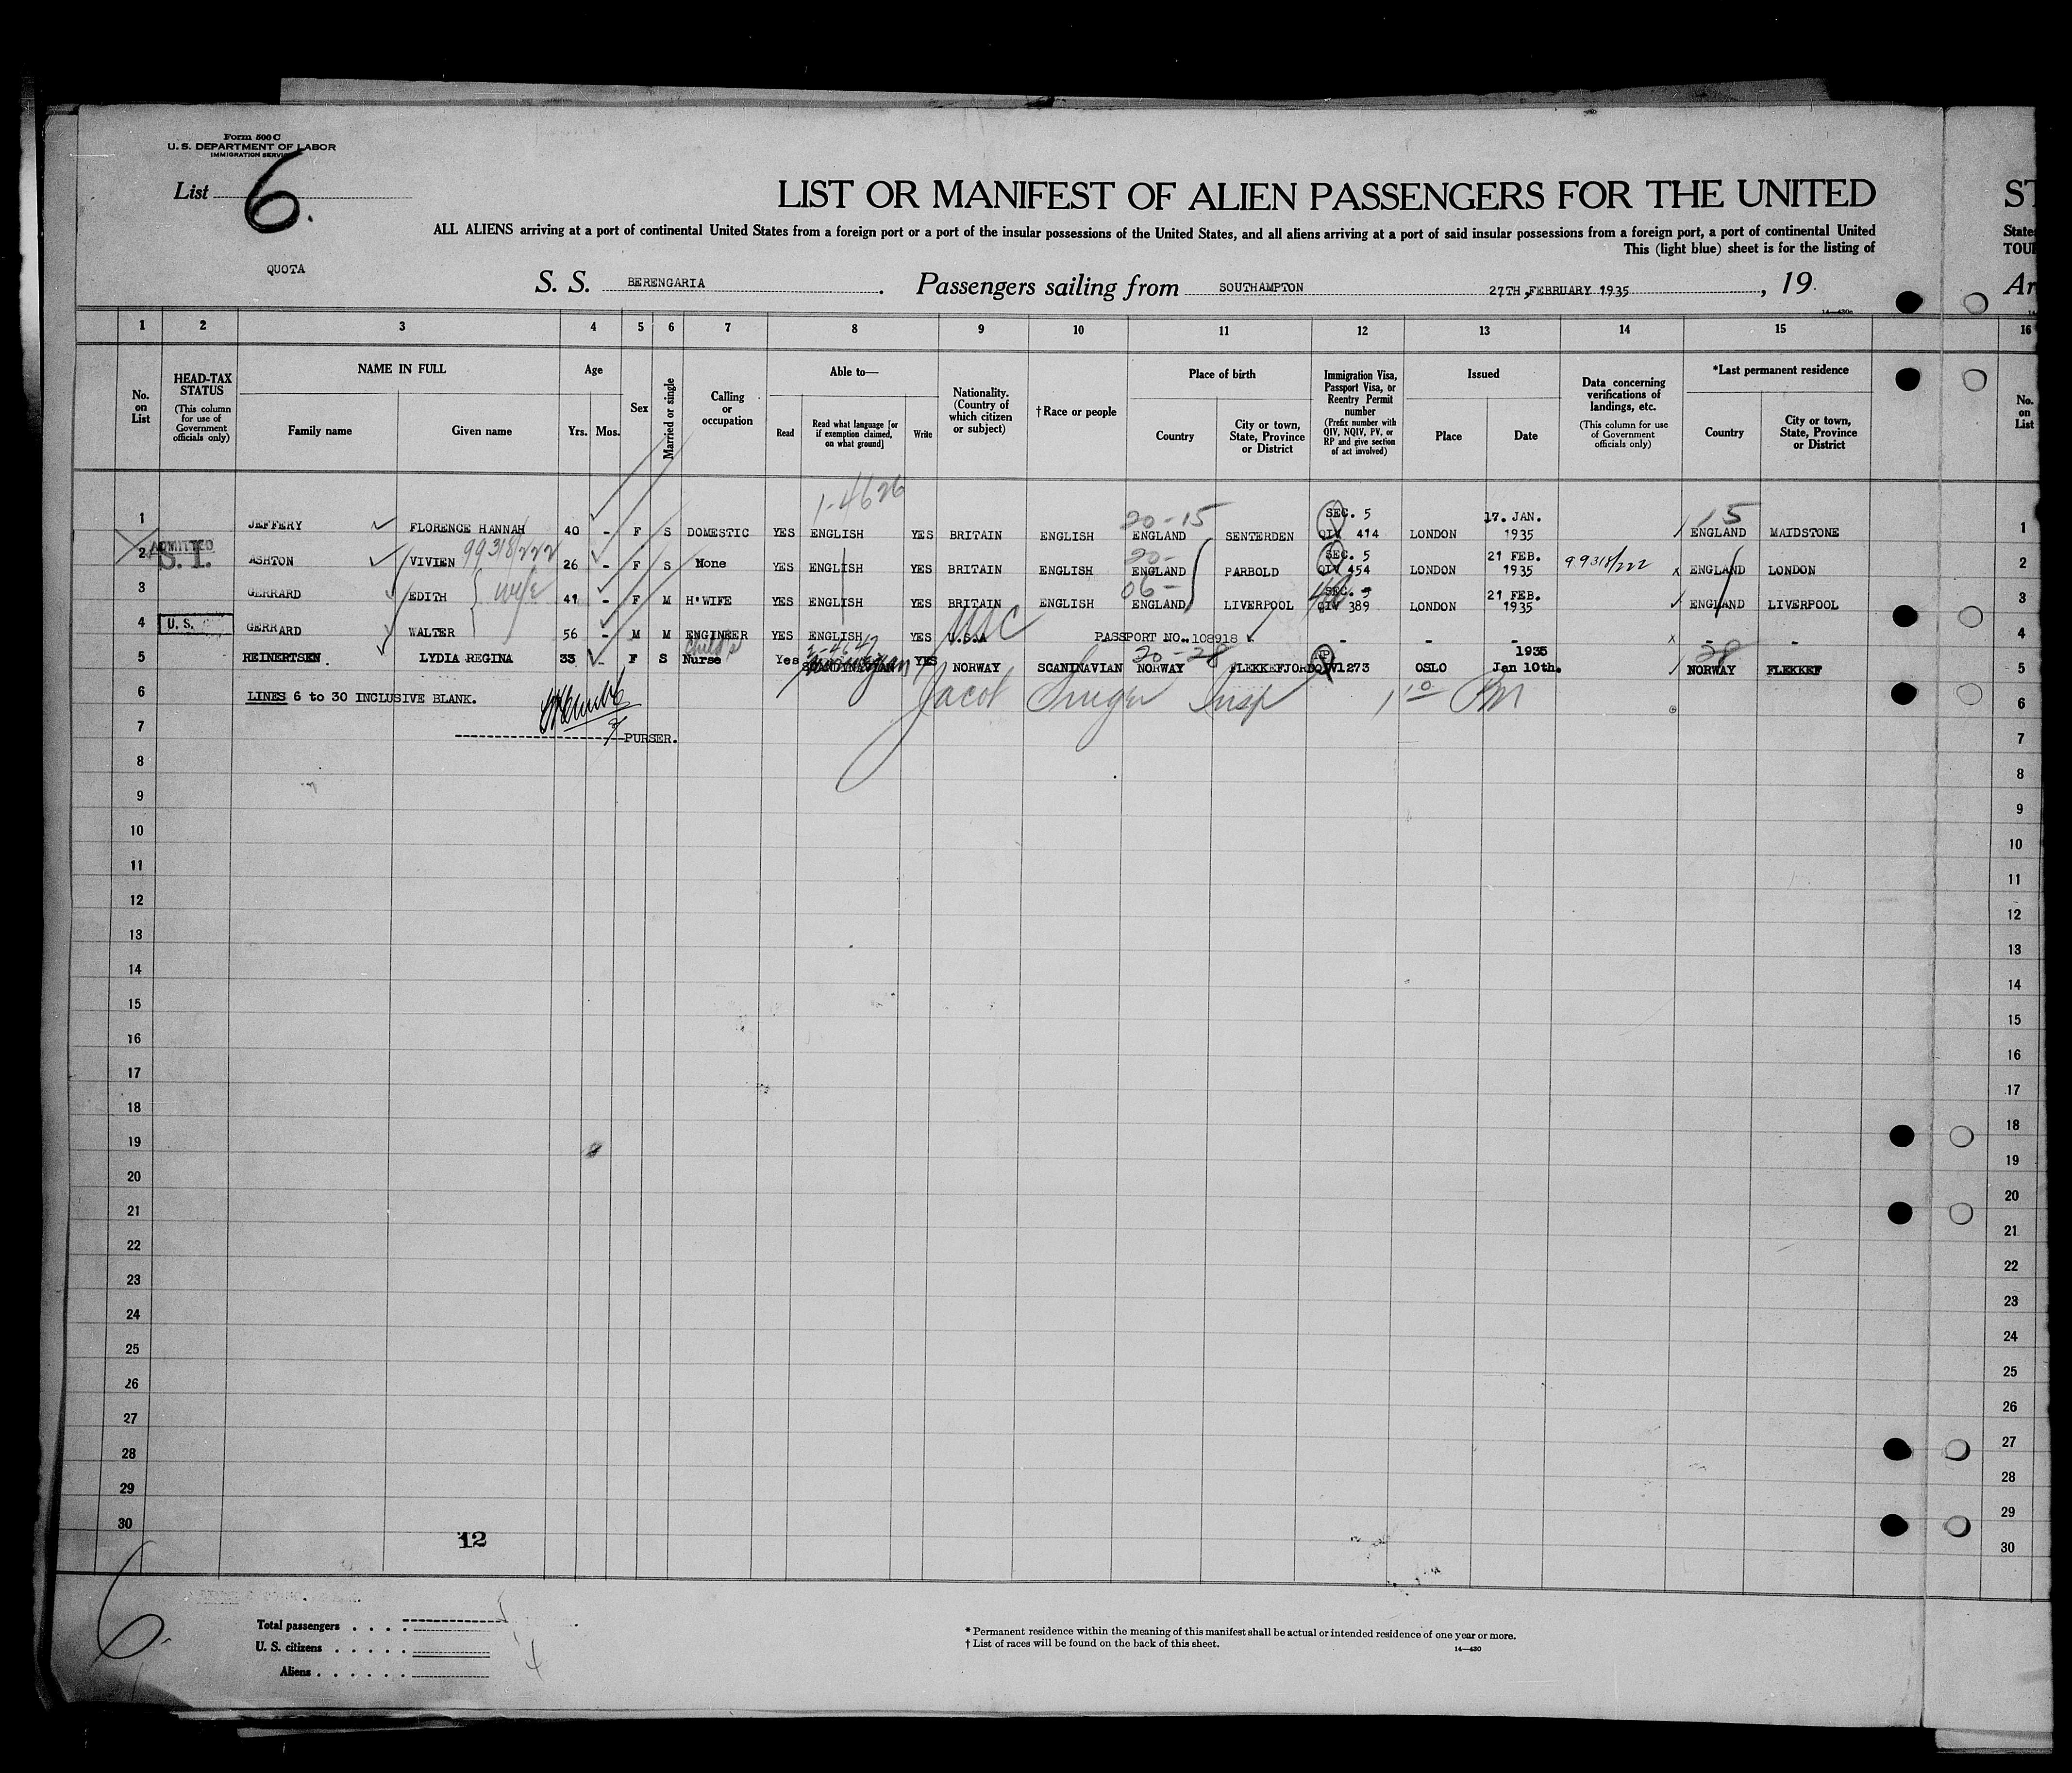 Form 500 C
U. S. DEPARTMENT OF LABOR
IMMIGRATION SERVICE
List 6.
LIST OR MANIFEST OF ALIEN PASSENGERS FOR THE UNITED
ST
ALL ALIENS arriving at a port of continental United States from a foreign port or a port of the insular possessions of the United States, and all aliens arriving at a port of said insular possessions from a foreign port, a port of continental United
States
This (light blue) sheet is for the listing of
TOU
QUOTA
S. S. BERENGARIA. Passengers sailing from SOUTHAMPTON 27TH, FEBRUARY 1935, 19
Ar
1 2 3 4 5 6 7 8 9 10 11 12 13 14 15 16
No. on List
HEAD-TAX STATUS
(This column for use of Government officials only)
NAME IN FULL
Family name Given name
Age
Yrs. Mos.
Sex
Married or single
Calling or occupation
Able to—
Read
Read what language [or if exemption claimed, on what ground]
Write
Nationality. (Country of which citizen or subject)
†Race or people
Place of birth
Country
City or town, State, Province or District
Immigration Visa, Passport Visa, or Reentry Permit number
(Prefix number with QIV, NQIV, PV, or RP and give section of act involved)
Issued
Place Date
Data concerning verifications of landings, etc.
(This column for use of Government officials only)
*Last permanent residence
Country
City or town, State, Province or District
No. on List
1-4626
1 JEFFERY FLORENCE HANNAH 40 - F S DOMESTIC YES ENGLISH YES BRITAIN ENGLISH 20-15 ENGLAND SENTERDEN SEC. 5 QIV 414 LONDON 17. JAN. 1935 15 ENGLAND MAIDSTONE 1
ADMITTED
S. I.
2 ASHTON VIVIEN 99318/222 26 - F S None YES ENGLISH YES BRITAIN ENGLISH 20- ENGLAND PARBOLD SEC. 5 QIV 454 LONDON 21 FEB. 1935 99318/222 x ENGLAND LONDON 2
3 GERRARD EDITH wife 41 - F M H'WIFE YES ENGLISH YES BRITAIN ENGLISH 06- ENGLAND LIVERPOOL SEC. 5 QIV 389 LONDON 21 FEB. 1935 ENGLAND LIVERPOOL 3
4 U. S. C GERRARD WALTER 56 - M M ENGINEER YES ENGLISH YES U.S.A PASSPORT NO. 108918 - - - x - - 4
5 REINERTSEN LYDIA REGINA 33 - F S Child's Nurse Yes SCANDINAVIAN YES NORWAY SCANINAVIAN 20-28 NORWAY FLEKKEFJORD QIV1273 OSLO 1935 Jan 10th. 28 NORWAY FLEKKEF 5
6 LINES 6 to 30 INCLUSIVE BLANK. Jacob Insp 1 10 PM 6
7 PURSER. 7
8 8
9 9
10 10
11 11
12 12
13 13
14 14
15 15
16 16
17 17
18 18
19 19
20 20
21 21
22 22
23 23
24 24
25 25
26 26
27 27
28 28
29 29
30 30
12
6
Total passengers . . . .
U. S. citizens . . . . .
Aliens . . . . . . 4
* Permanent residence within the meaning of this manifest shall be actual or intended residence of one year or more.
† List of races will be found on the back of this sheet.
14—430